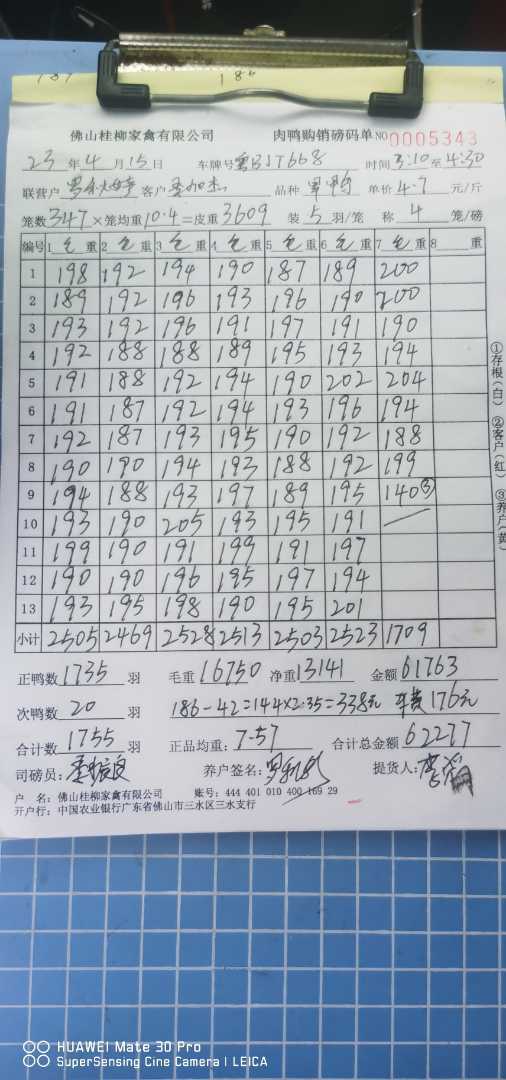 186
佛山桂柳家禽有限公司 肉鸭购销磅码单 NO 0005343
23 年 4 月 15 日 车牌号 粤BJT668 时间 3:10 至 4:30
联营户 客户 品种 单价 4.7 元/斤
笼数 347 ×笼均重 10.4 =皮重 3609 装 5 羽/笼 称 4 笼/磅
编号 1 毛 重 2 毛 重 3 毛 重 4 毛 重 5 毛 重 6 毛 重 7 毛 重 8 重
1 198 192 194 190 187 189 200
2 189 192 196 193 196 190 200
3 193 192 196 191 197 191 190
4 192 188 188 189 195 193 194
5 191 188 192 194 190 202 204
6 191 187 192 194 193 196 194
7 192 187 193 195 190 192 188
8 190 190 194 193 188 192 199
9 194 188 193 197 189 195 140③
10 193 190 205 193 195 191
11 199 190 191 199 191 197
12 190 190 196 195 197 194
13 193 195 198 190 195 201
小计 2505 2469 2528 2513 2503 2523 1709
①存根(白) ②客户(红) ③养户(黄)
正鸭数 1735 羽 毛重 16750 净重 13141 金额 61763
次鸭数 20 羽 186-42=144×2.35=338元 车费176元
合计数 1755 羽 正品均重: 7.57 合计总金额 62277
司磅员: 养户签名: 提货人:
户 名: 佛山桂柳家禽有限公司 账号: 444 401 010 400 169 29
开户行: 中国农业银行广东省佛山市三水区三水支行
HUAWEI Mate 30 Pro
SuperSensing Cine Camera | LEICA